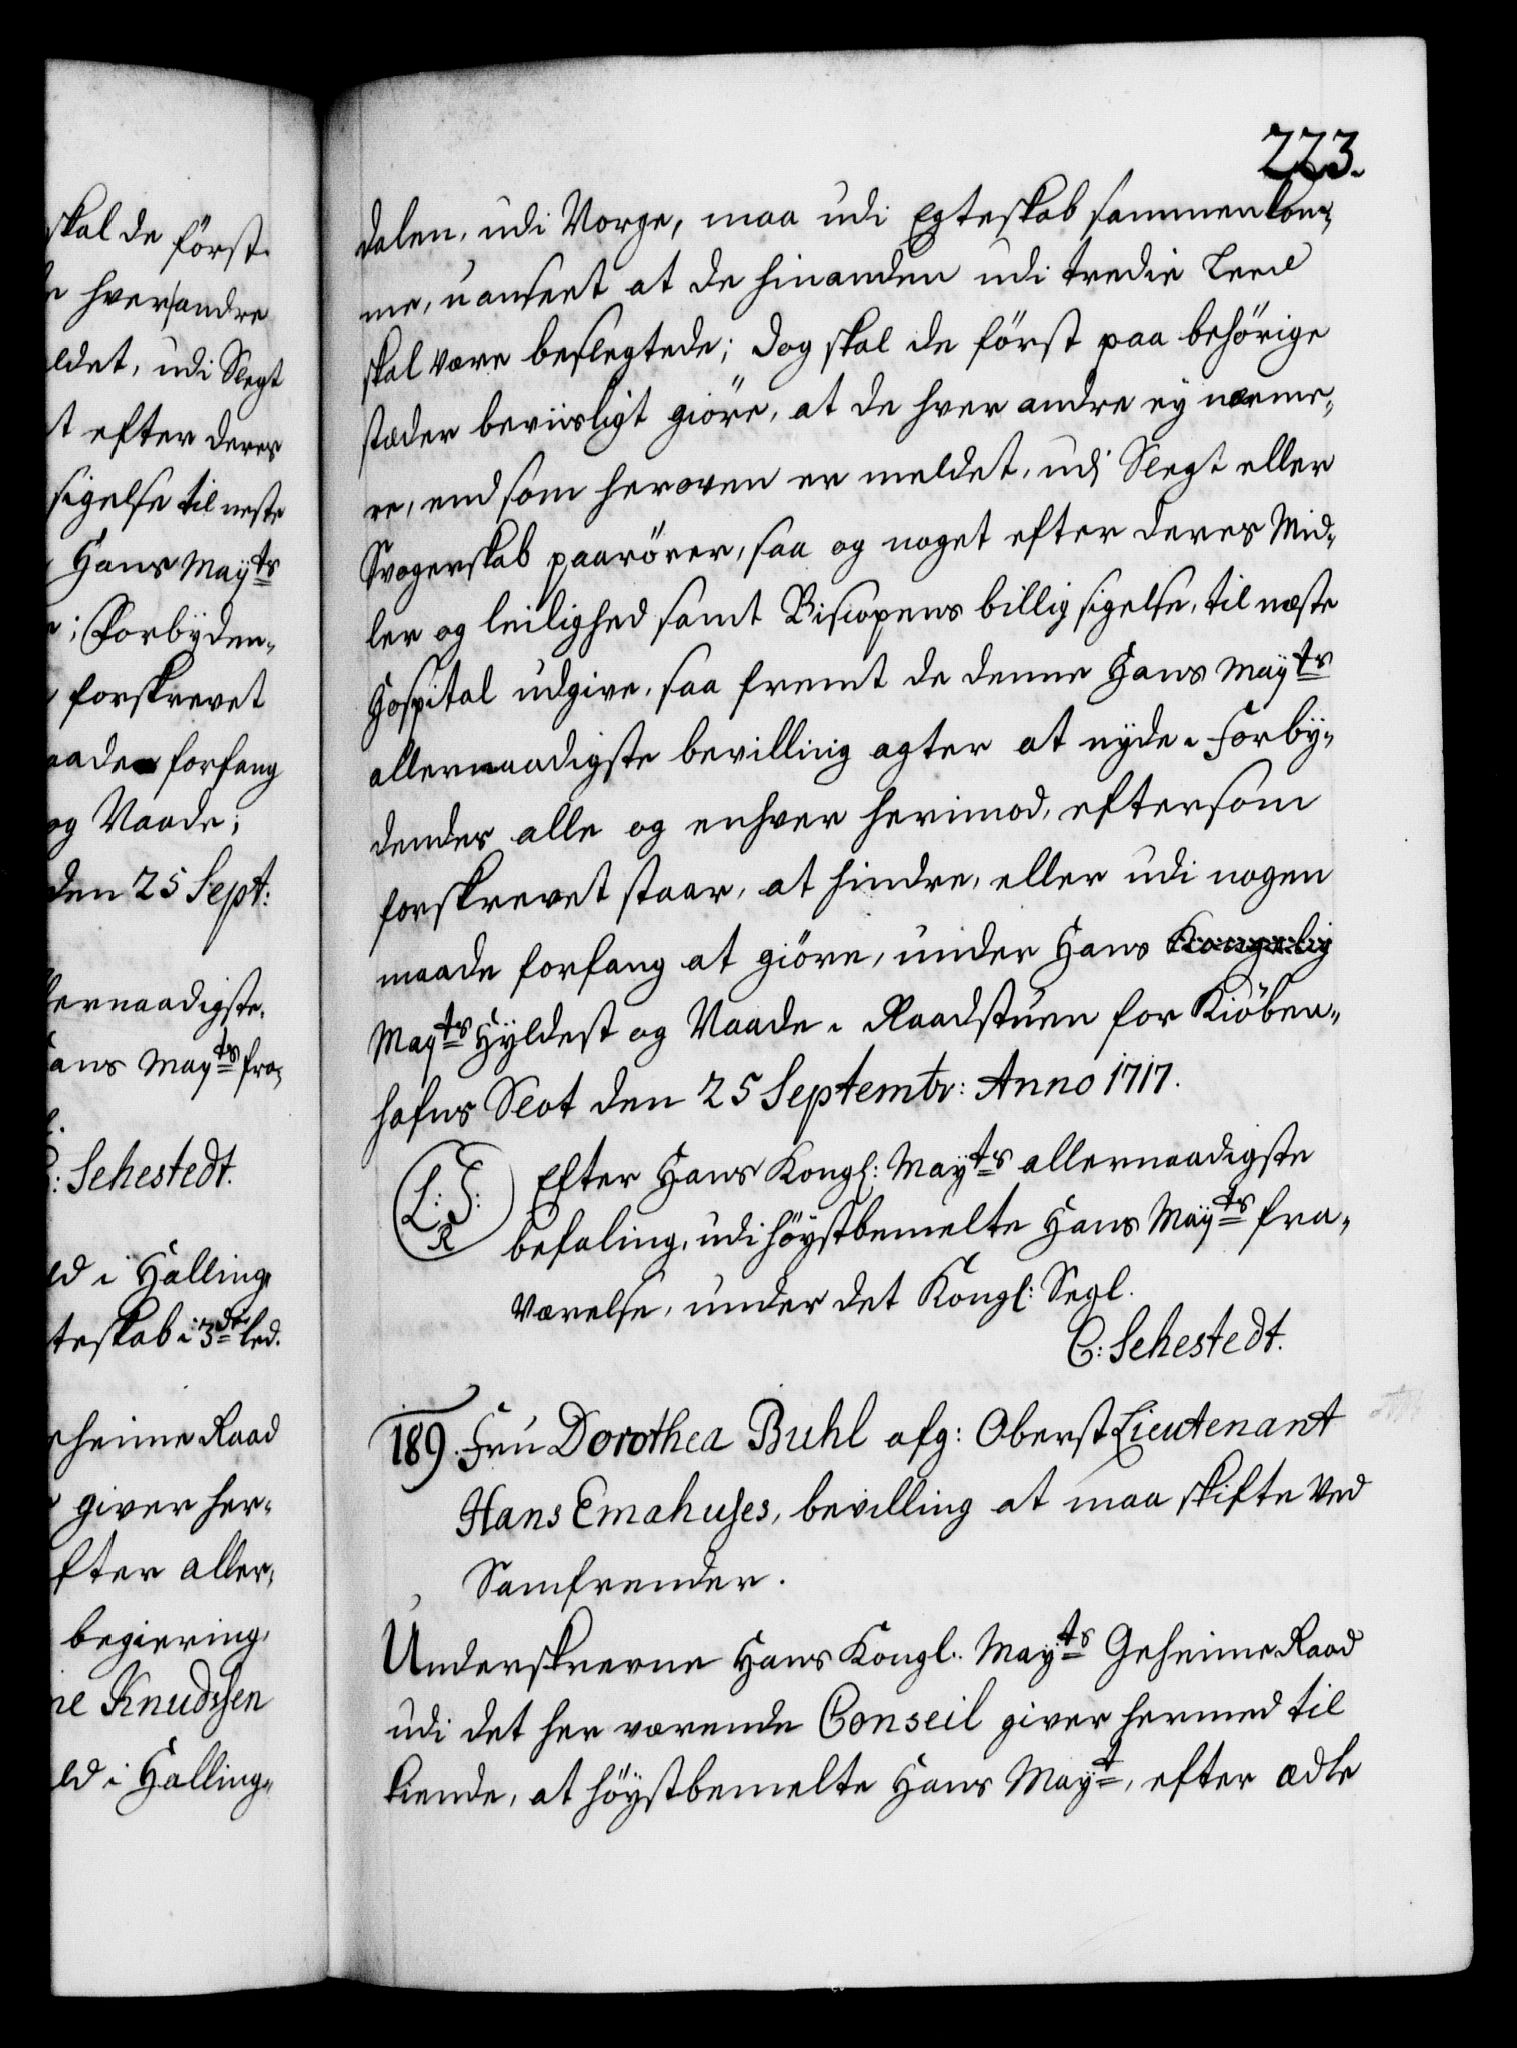 skal de först
hver andre
ldet, udi Slegt
t efter deres
sigelse til neste
Hans Mayts
; Forbyden„
forskrevet
aade forfang
og Naade;
den 25 Sept:
lernaadigste
Hans Mayts fra„
C: Sehestedt.
ld i Halling„
teskab i 3de led.
eheime Raad
giver her„
fter aller„
begiering
ne Knudssen
ld i Halling„
223.
dalen, udi Norge, maa udi Egteskab sammenkom„
me, uanseet at de hinanden udi tredie Leed
skal være beslegtede; dog skal de först paa behörige
stæder beviisligt giöre, at de hver andre ey nærme„
re, end som heroven er meldet, udi Slegt eller
Svogerskab paarörer, saa og noget efter deres Mid„
ler og leilighed samt Biscopens billigsigelse, til næste
Hospital udgive, saa fremt de denne Hans Mayts
allernaadigste bevilling agter at nyde. Forby„
dendes alle og enhver herimod, eftersom
forskrevet staar, at hindre, eller udi nogen
maade forfang at giöre, under Hans Kongelig
Mayts Hyldest og Naade. Raadstuen for Kiöben„
hafns Slot den 25 Septembr: Anno 1717.
L: S: R Efter Hans Kongl: Mayts allernaadigste
befaling, udi höystbemelte Hans Mayts fra„
værelse, under det Kongl: Segl.
C: Sehestedt.
189. Fru Dorothea Buhl afg: Oberst Lieutenant
Hans Emahuses, bevilling at maa skifte ved
Samfrender.
Underskrevne Hans Kongl. Mayts Geheime Raad
udi det her værende Conseil giver hermed til
kiende, at höystbemelte Hans Mayt, efter ædle